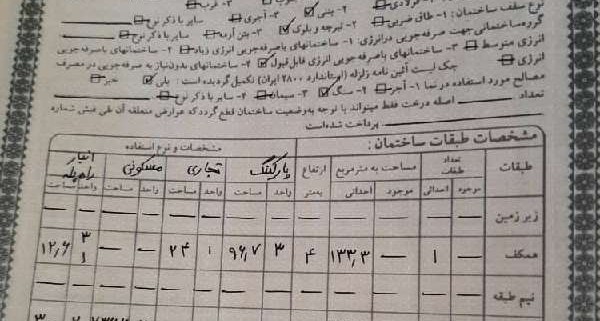 ۲- بتنی ☑ ۳- فرب
نوع سقف ساختمان: ۱- طاق ضربی ۲- تیرچه و بلوک ☑ ۳- بتن آرمه سایر با ذکر نوع
گروه ساختمانی جهت صرفه جویی در انرژی: ۱- ساختمانهای با صرفه جویی انرژی زیاد ۲- ساختمانهای با صرفه جویی
انرژی متوسط ۳- ساختمانهای با صرفه جویی انرژی قابل قبول ☑ ۴- ساختمانهای بدون نیاز به صرفه جویی در مصرف
انرژی چک لیست آئین نامه زلزله (استاندارد ۲۸۰۰ ایران) تکمیل گردیده است: بلی ☑ خیر
مصالح مورد استفاده در نما ۱- آجر ۲- سنگ ☑ ۳- سیمان ۴- سایر با ذکر نوع
تعداد اصله درخت فقط میتواند با توجه به وضعیت ساختمان قطع گردد که عوارض متعلقه آن طی فیش شماره
پرداخت شده است
مشخصات طبقات ساختمان:
طبقات تعداد طبقات مساحت به مترمربع ارتفاع مشخصات و نوع استفاده
بمتر پارکینگ تجاری مسکونی انبار راه پله
موجود احداثی موجود احداثی واحد مساحت واحد مساحت واحد مساحت واحد مساحت
زیرزمین — — — — — — — — — — — — —
همکف — ۱ — ۱۳۳,۳ ۴ ۳ ۹۶,۷ ۱ ۲۴ — — ۳ ۱ ۱۲,۶
نیم طبقه — — — — — — — — — — — — —